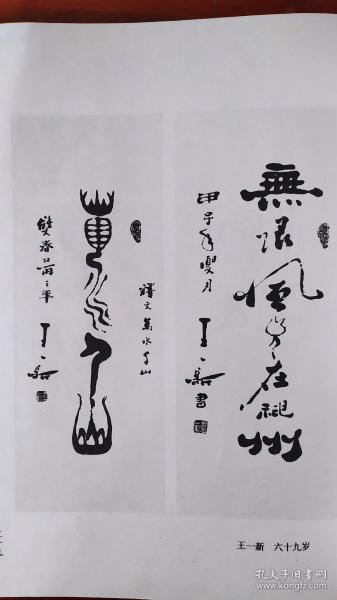 無限風光在州
甲子年夏月
王一新書
釋文萬水千山
萬水千山
雙春之年
王一新
王一新 六十九岁
孔夫子旧书网
www.kongfz.com